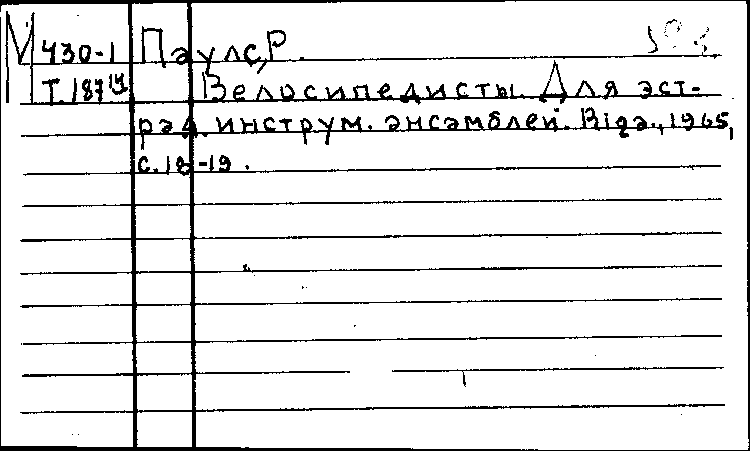 М 430-1 Паулс, Р.
Т.187 Велосипедисты. Для эст-
рад. инструм. ансамблей. Riga., 1965,
с. 18-19.